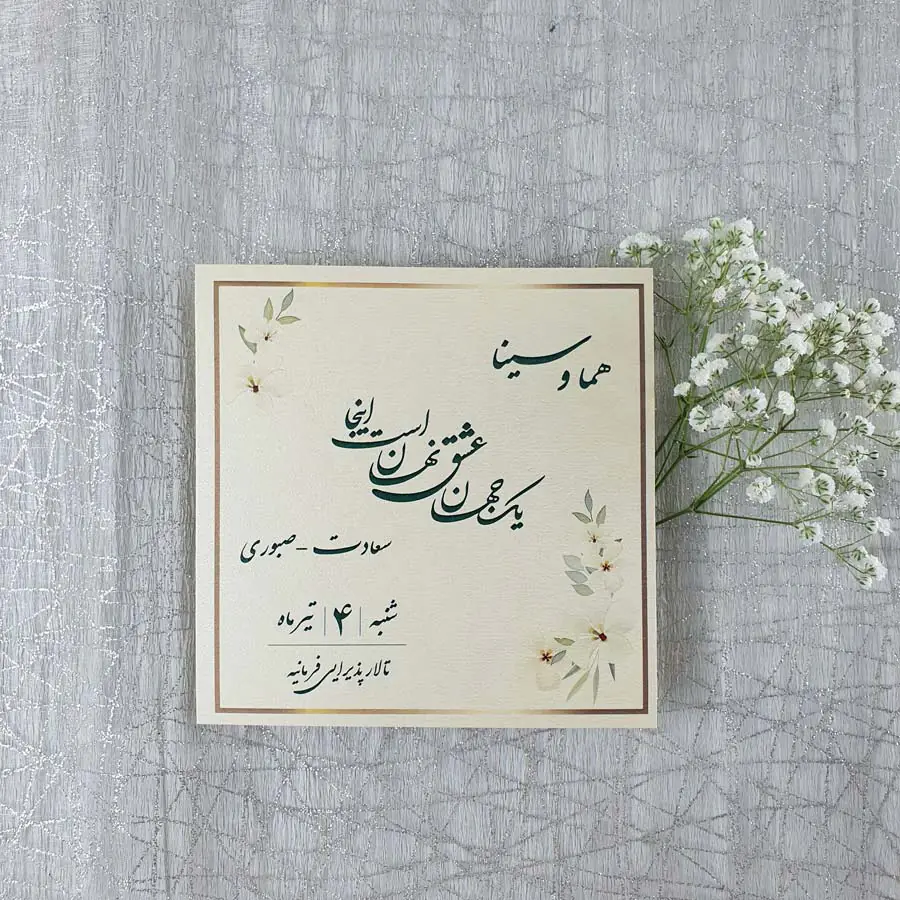 هما و سینا
یک جهان عشق نهان است اینجا
سعادت - صبوری
شنبه | ۴ | تیر ماه
تالار پذیرایی فرمانیه